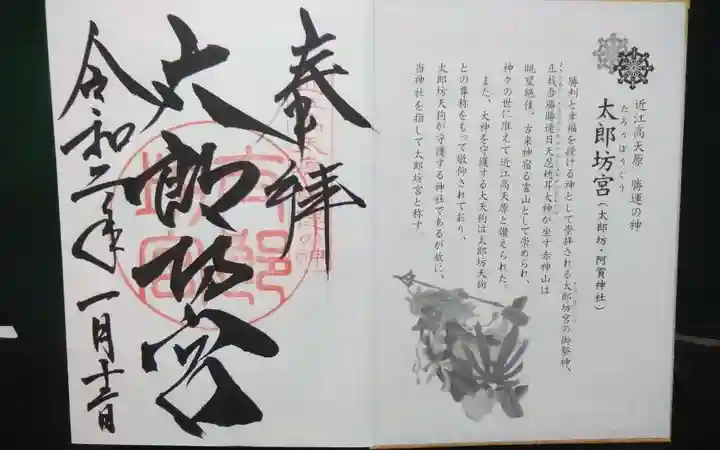 近江高天原 勝運の神
たろうぼうぐう
太郎坊宮(太郎坊・阿賀神社)
勝利と幸福を授ける神として崇拝される太郎坊宮の御祭神、
正哉吾勝勝速日天忍穂耳大神が坐す赤神山は
眺望絶佳、古来神宿る霊山として崇められ、
神々の世に准えて近江高天原と讃えられた。
また、大神を守護する大天狗は太郎坊天狗
との尊称をもって敬仰されており、
太郎坊天狗が守護する神社であるが故に、
当神社を指して太郎坊宮と称す。
奉拝
太郎坊宮
令和二年一月十二日